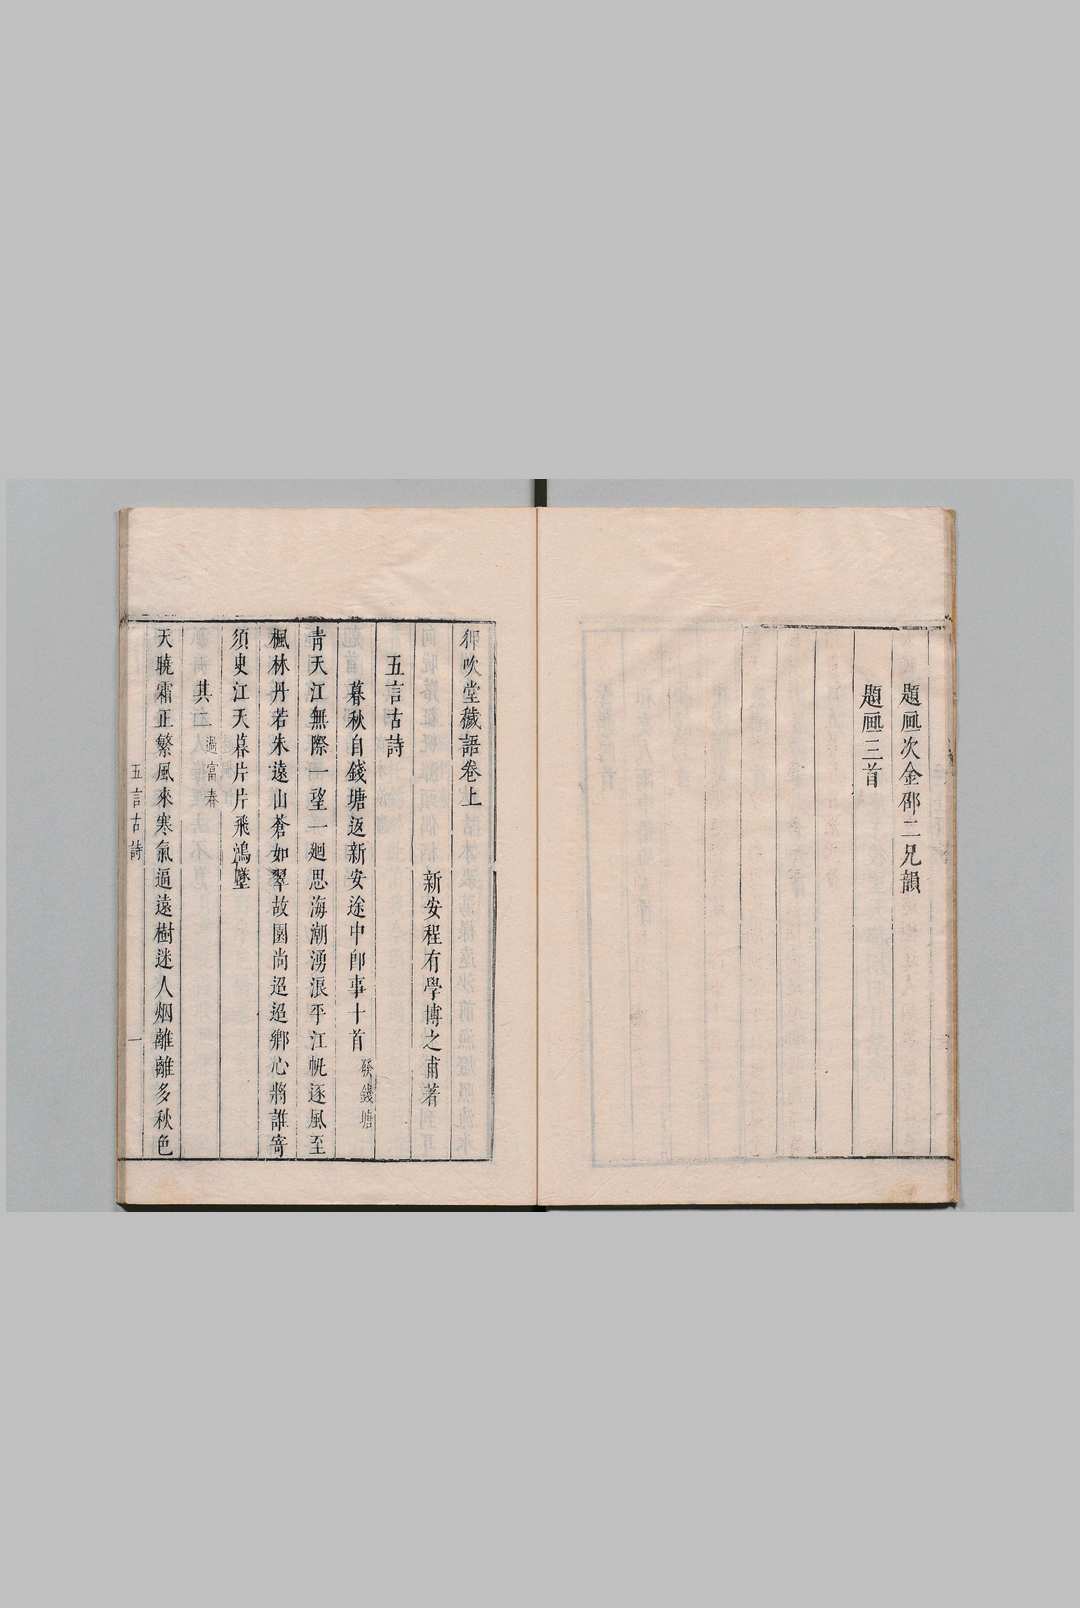 題画次金邠二兄韻
題画三首
狎吹堂穢語卷上
新安程有學博之甫著
五言古詩
暮秋自錢塘返新安途中即事十首 發錢塘
青天江無際一望一迴思海潮湧浪平江帆逐風至
楓林丹若朱遠山蒼如翠故園尚迢迢鄉心將誰寄
須臾江天暮片片飛鴻墜
其二 過富春
天曉霜正繁風來寒氣逼遠樹迷人烟離離多秋色
五言古詩 一